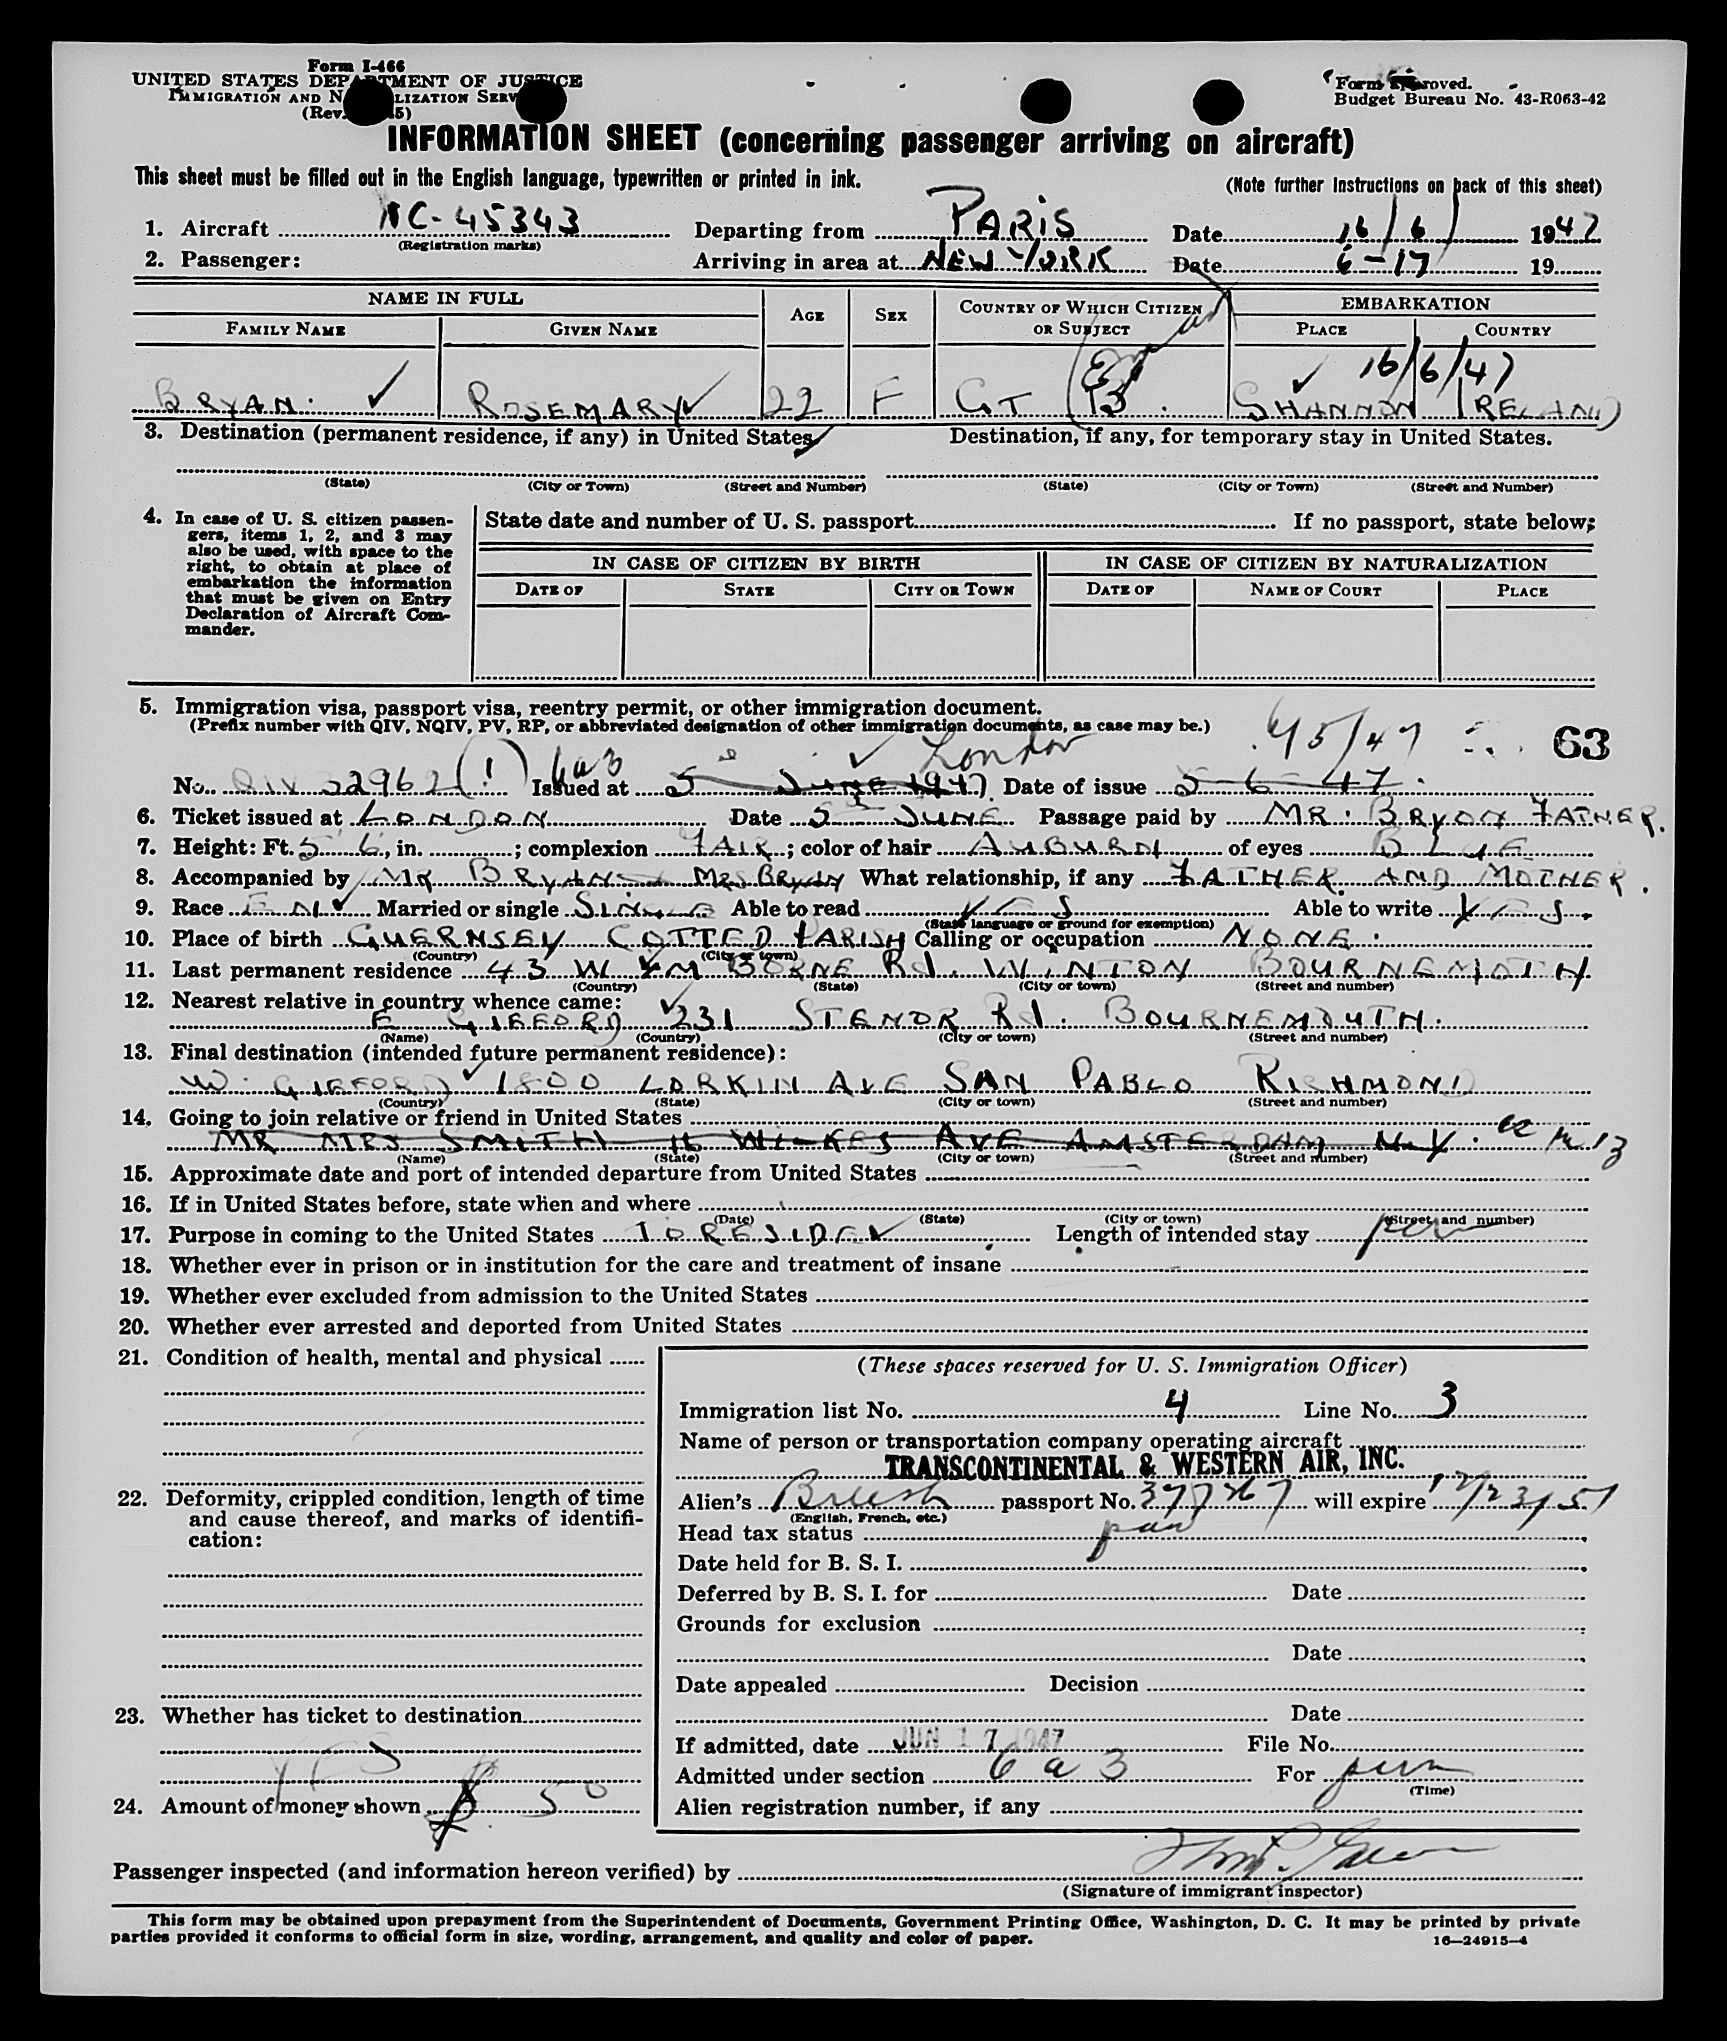 Form I-466
UNITED STATES DEPARTMENT OF JUSTICE
IMMIGRATION AND NATURALIZATION SERVICE
(Rev. 5)
Form approved.
Budget Bureau No. 43-R063-42
INFORMATION SHEET (concerning passenger arriving on aircraft)
This sheet must be filled out in the English language, typewritten or printed in ink.
(Note further instructions on back of this sheet)
1. Aircraft NC-45343 Departing from PARIS Date 16/6/ 1947
(Registration marks)
2. Passenger: Arriving in area at NEW YORK Date 6-17 19
NAME IN FULL AGE SEX COUNTRY OF WHICH CITIZEN OR SUBJECT EMBARKATION
FAMILY NAME GIVEN NAME PLACE COUNTRY
16/6/47
BRYAN. ROSEMARY 22 F GT B. SHANNON IRELAND
3. Destination (permanent residence, if any) in United States Destination, if any, for temporary stay in United States.
(State) (City or Town) (Street and Number) (State) (City or Town) (Street and Number)
4. In case of U. S. citizen passengers, items 1, 2, and 3 may also be used, with space to the right, to obtain at place of embarkation the information that must be given on Entry Declaration of Aircraft Commander.
State date and number of U. S. passport If no passport, state below:
IN CASE OF CITIZEN BY BIRTH IN CASE OF CITIZEN BY NATURALIZATION
DATE OF STATE CITY OR TOWN DATE OF NAME OF COURT PLACE
5. Immigration visa, passport visa, reentry permit, or other immigration document.
(Prefix number with QIV, NQIV, PV, RP, or abbreviated designation of other immigration documents, as case may be.)
6a3 London 63
No. QIV 32962 (1) Issued at 5 JUNE 1947 Date of issue 5-6-47.
6. Ticket issued at LONDON Date 5 JUNE Passage paid by MR. BRYAN FATHER.
7. Height: Ft. 5 6, in. ; complexion FAIR; color of hair AUBURN of eyes BLUE
8. Accompanied by MR BRYAN MRS BRYAN What relationship, if any FATHER AND MOTHER.
9. Race EN Married or single SINGLE Able to read YES Able to write YES.
(State language or ground for exemption)
10. Place of birth GUERNSEY COTTED PARISH Calling or occupation NONE.
(Country) (City or town)
11. Last permanent residence 43 WIMBORNE Rd. WINTON BOURNEMOTH
(Country) (State) (City or town) (Street and number)
12. Nearest relative in country whence came:
E GIFFORD 231 Rd. BOURNEMOUTH.
(Name) (Country) (City or town) (Street and number)
13. Final destination (intended future permanent residence):
W. GIFFORD 1800 LARKIN AVE SAN PABLO RICHMOND
(Country) (State) (City or town) (Street and number)
14. Going to join relative or friend in United States
MR MRS SMITH 16 WILKES AVE AMSTERDAM N.Y. 13
(Name) (State) (City or town) (Street and number)
15. Approximate date and port of intended departure from United States
16. If in United States before, state when and where
(Date) (State) (City or town) (Street and number)
17. Purpose in coming to the United States TO RESIDE Length of intended stay perm
18. Whether ever in prison or in institution for the care and treatment of insane
19. Whether ever excluded from admission to the United States
20. Whether ever arrested and deported from United States
21. Condition of health, mental and physical
22. Deformity, crippled condition, length of time and cause thereof, and marks of identification:
23. Whether has ticket to destination
YES
24. Amount of money shown $ 50
(These spaces reserved for U. S. Immigration Officer)
Immigration list No. 4 Line No. 3
Name of person or transportation company operating aircraft
TRANSCONTINENTAL & WESTERN AIR, INC.
Alien's British passport No. 377267 will expire 12/23/51
(English, French, etc.)
Head tax status paid
Date held for B. S. I.
Deferred by B. S. I. for Date
Grounds for exclusion
Date
Date appealed Decision
Date
If admitted, date JUN 17 1947 File No.
Admitted under section 6a3 For perm
(Time)
Alien registration number, if any
Passenger inspected (and information hereon verified) by
(Signature of immigrant inspector)
This form may be obtained upon prepayment from the Superintendent of Documents, Government Printing Office, Washington, D. C. It may be printed by private
parties provided it conforms to official form in size, wording, arrangement, and quality and color of paper.
16—24915-4